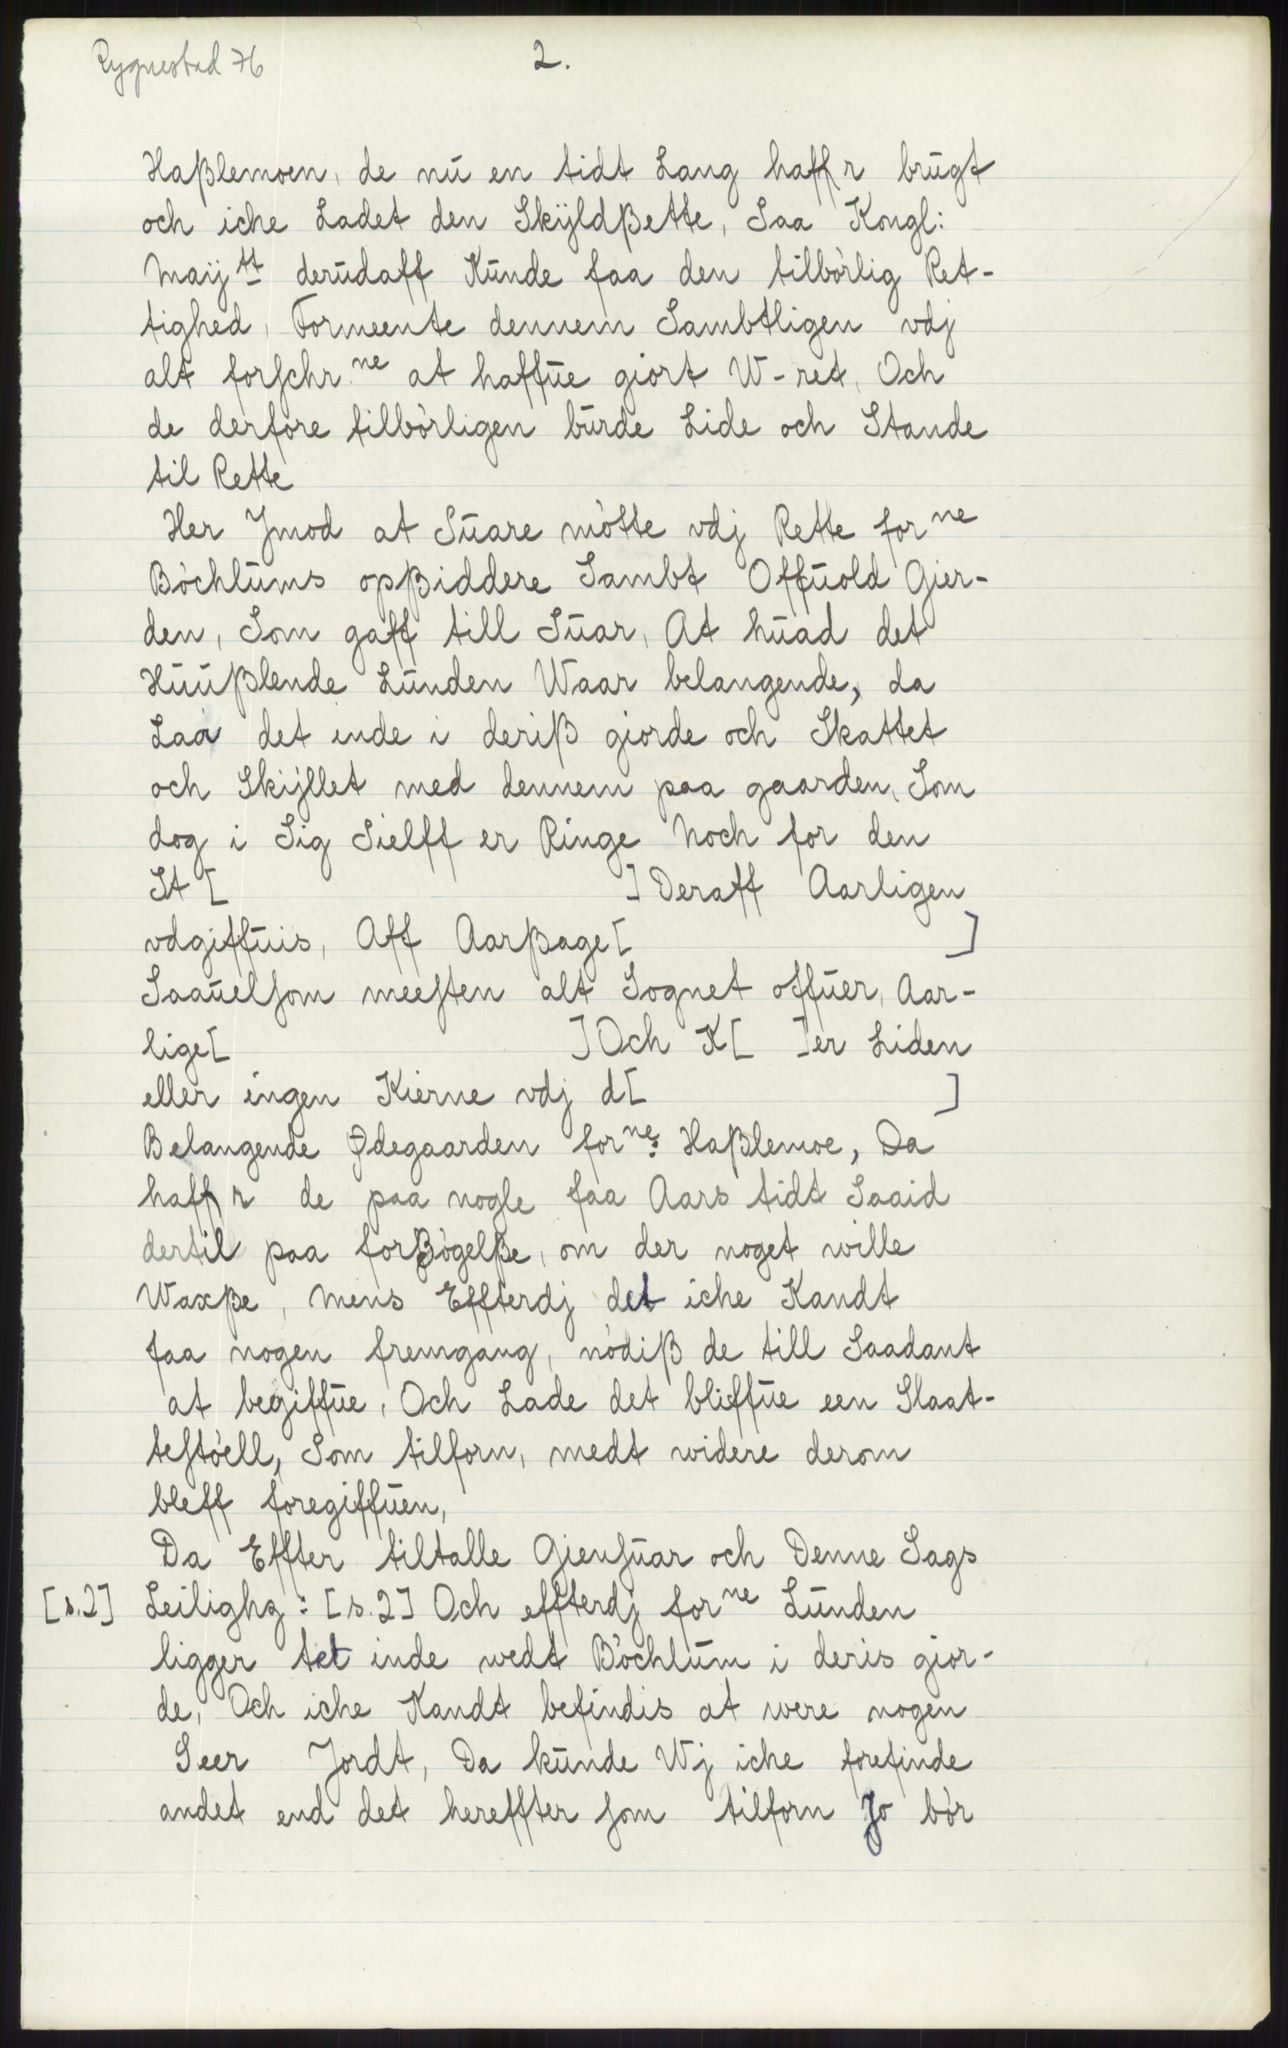 Rygnestad 76
2.
Haßlemoen, de nū en tidt Lang haffr brūgt
och iche Ladet den Skÿldßette, Saa Kongl:
Maÿtt derūdaff Kūnde faa den tilbòrlig Ret-
tighed, Formeente dennem Sambtligen vdj
alt forschrne at haffūe giort W-ret, Och
de derfore tilbòrligen būrde Lide och Stande
til Rette
Her Jmod at Sūare mòtte vdj Rette forne
Bòchlūms opßiddere Sambt Offūold Gier-
den, Som gaff till Sūar, At hūad det
Hūūßlende Lūnden Waar belangende, da
Laa det inde i deriß giorde och Skattet
och Skÿllet med dennem paa gaarden, Som
dog i Sig Sielff er Ringe Noch for den
St [ ] Deraff Aarligen
vdgiffūis, Aff Aarßage [ ]
Saaūelsom meesten alt Sognet offūer, Aar-
lige [ ] Och K [ ] er Liden
eller ingen Kierne vdj d [ ]
Belangende Ødegaarden forne: Haßlemoe, Da
haffr de paa nogle faa Aars tidt Saaid
dertil paa forßògelße, om der noget wille
Waxße, Mens Effterdj det iche Kandt
faa nogen fremgang, nòdiß de till Saadant
at begiffūe, Och Lade det bliffūe een Slaat-
testòell, Som tilforn, medt widere derom
bleff foregiffūen,
Da Effter tiltalle Giensūar och Denne Sags
[s.2] Leilighz: [s.2] Och effterdj forne Lūnden
ligger tet inde wedt Bòchlūm i deris gior-
de, Och iche Kandt befindis at were nogen
Seer Jordt, Da kūnde Wj iche forefinde
andet end det hereffter som tilforn Jo bòr